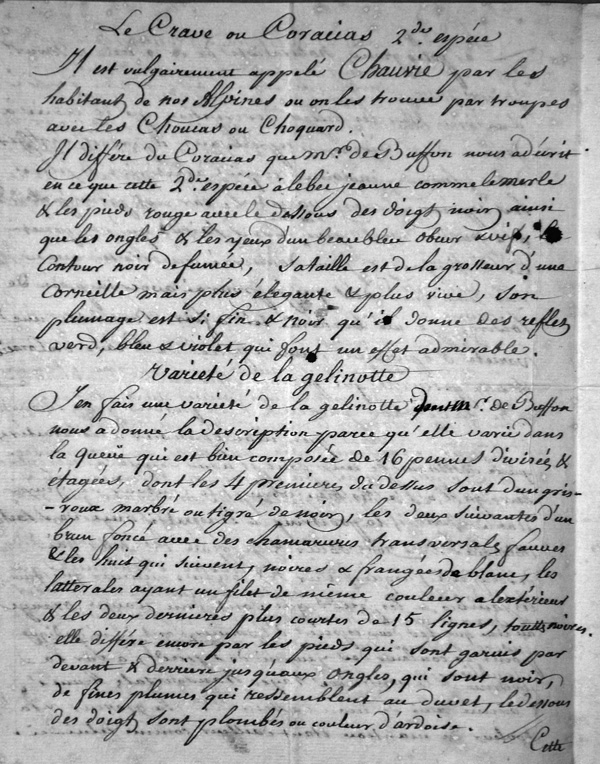 Le Crave ou Coracias 2.de espéce
Il est vulgairement appelé Chauvie par les
habitant de nos Alpines ou on les trouve par troupes
avec les Choucas ou Choquard.
Il différe du Coracias que mr. de Buffon nous a décrit
en ce que cette 2.de espéce à le bec jeaune comme le merle
& les pieds rouge avec le dessous des doigt noir, ainsi
que les ongles & les yeux d'un beau bleu obcur & vif, le
contour noir de fumée, sa taille est de la grosseur d'une
corneille mais plus élegante & plus vive, son
plumage est si fin & noir qu'il donne des reflet
verd, bleu & violet qui font un effet admirable.
Varieté de la gelinotte
J'en fais une varieté de la gelinotte dont mr. de Buffon
nous a donné la description parce qu'elle varie dans
la queüe qui est bien composée de 16 pennes divisées &
étagées, dont les 4 premieres du dessus sont d'un gris-
-roux marbré ou tigré de noir, les deux suivantes d'un
brun foncé avec des chamarures transversales fauves
& les huit qui suivent, noires & frangées de blanc, les
latterales ayant un filet de même couleur a l'extérieur
& les deux dernieres plus courtes de 15 lignes, toutes noires.
elle différe encore par les pieds qui sont garnis par
devant & derriere jusqu'aux ongles, qui sont noir,
de fines plumes qui ressemblent au duvet, le dessous
des doigt sont plombés ou couleur d'ardoise.
Cette